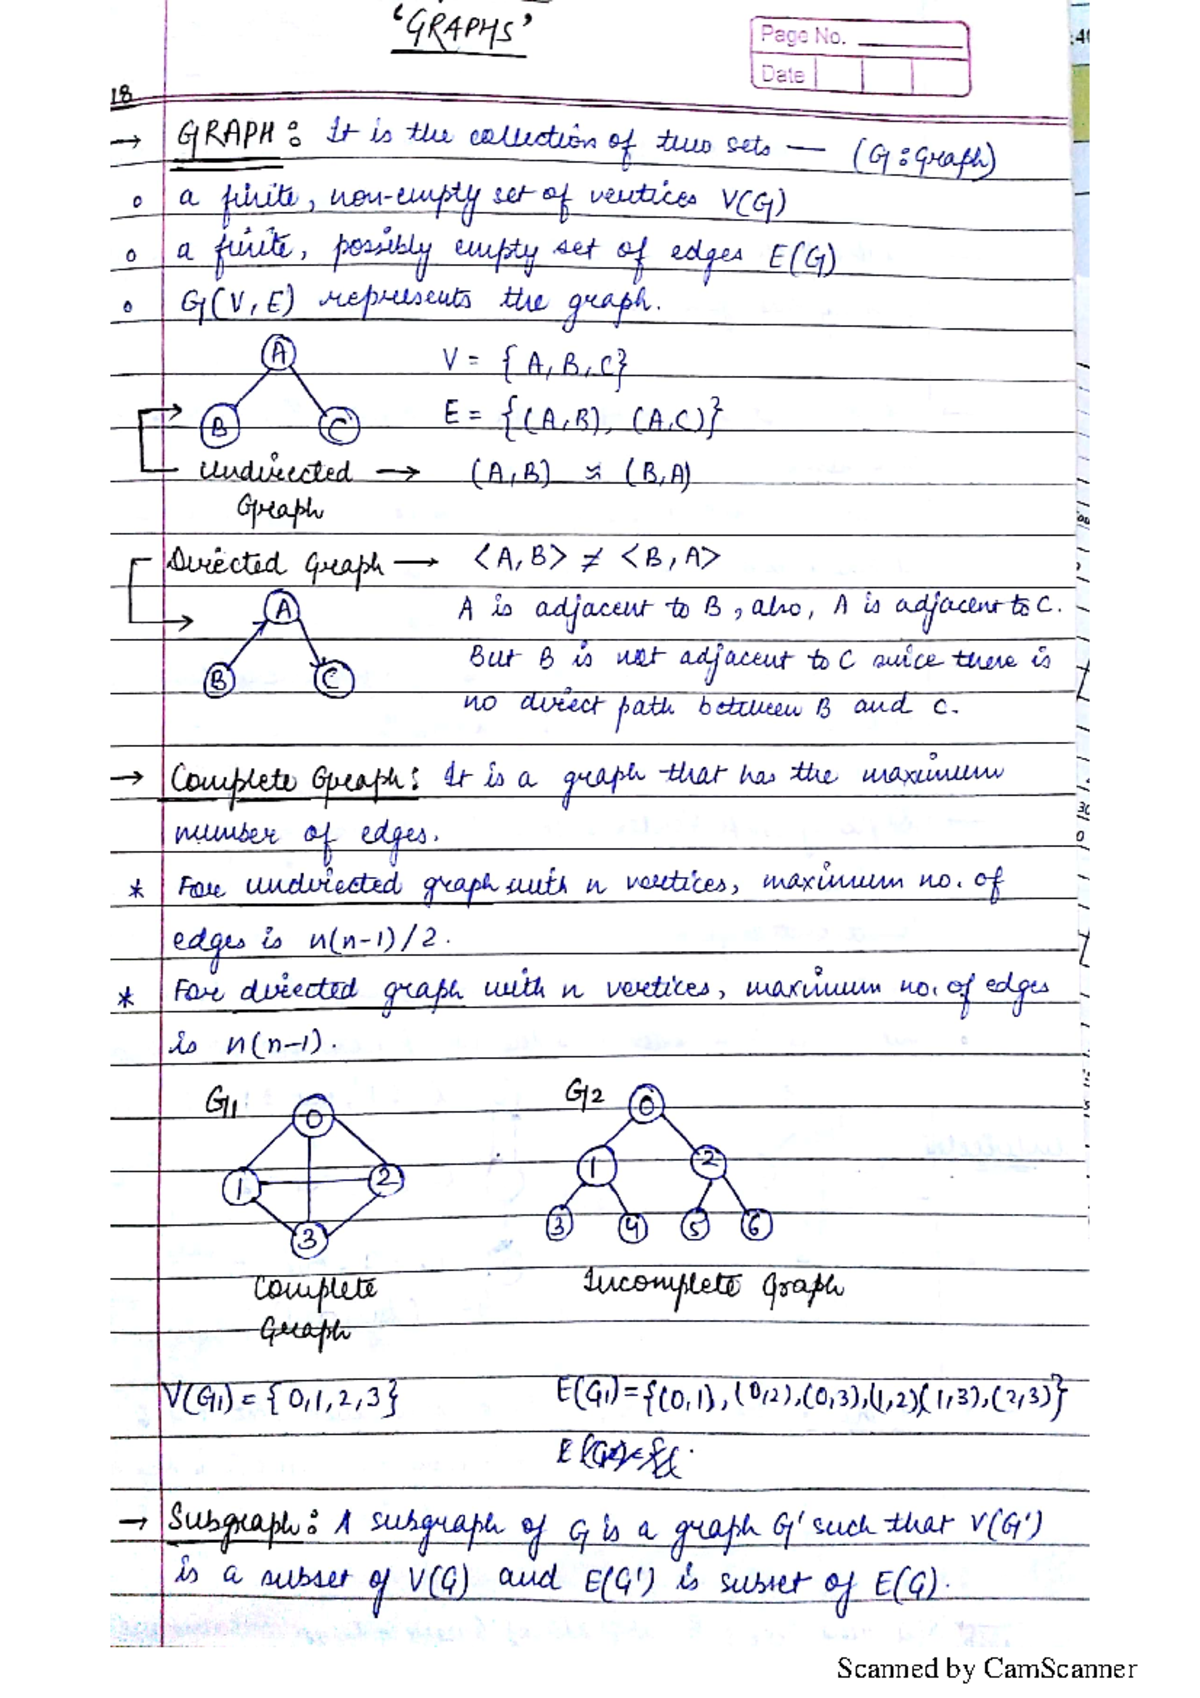 'GRAPHS'
Page No.
Date
18
→ GRAPH : It is the collection of two sets — (G : Graph)
o a finite, non-empty set of vertices V(G)
o a finite, possibly empty set of edges E(G)
o G(V, E) represents the graph.
A
B C
V = { A, B, C}
E = {(A,B), (A,C)}
Undirected → (A,B) ≈ (B,A)
Graph
Directed Graph → <A, B> ≠ <B, A>
A
B C
A is adjacent to B, also, A is adjacent to C.
But B is not adjacent to C since there is
no direct path between B and C.
→ Complete Graph : It is a graph that has the maximum
number of edges.
* For undirected graph with n vertices, maximum no. of
edges is n(n-1)/2.
* For directed graph with n vertices, maximum no. of edges
is n(n-1).
G1
0
1 2
3
Complete
Graph
G2
0
1 2
3 4 5 6
Incomplete Graph
V(G1) = { 0,1,2,3}
E(G1) = {(0,1), (0,2),(0,3),(1,2)(1,3),(2,3)}
→ Subgraph : A subgraph of G is a graph G' such that V(G')
is a subset of V(G) and E(G') is subset of E(G).
Scanned by CamScanner